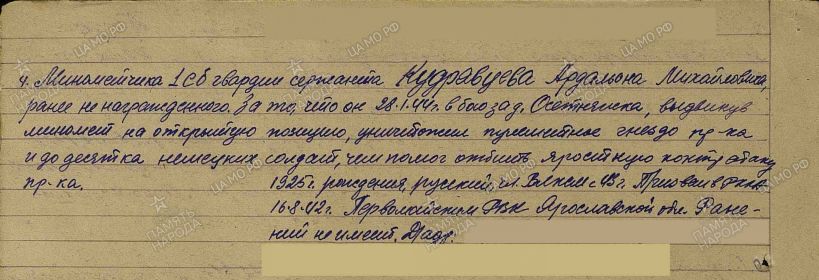 4. Минометчика 1 сб гвардии сержанта Кудрявцева Ардальона Михайловича,
ранее не награжденного. За то, что он 28.1.44г. в бою за д. Осетняжка, выдвинув
миномет на открытую позицию, уничтожил пулеметное гнездо пр-ка
и до десятка немецких солдат, чем помог отбить яростную контратаку
пр-ка.
1925г. рождения, русский, чл. ВЛКСМ с 43г. Призван в РККА
16.8.42г. Первомайским РВК Ярославской обл. Ране-
ний не имеет.